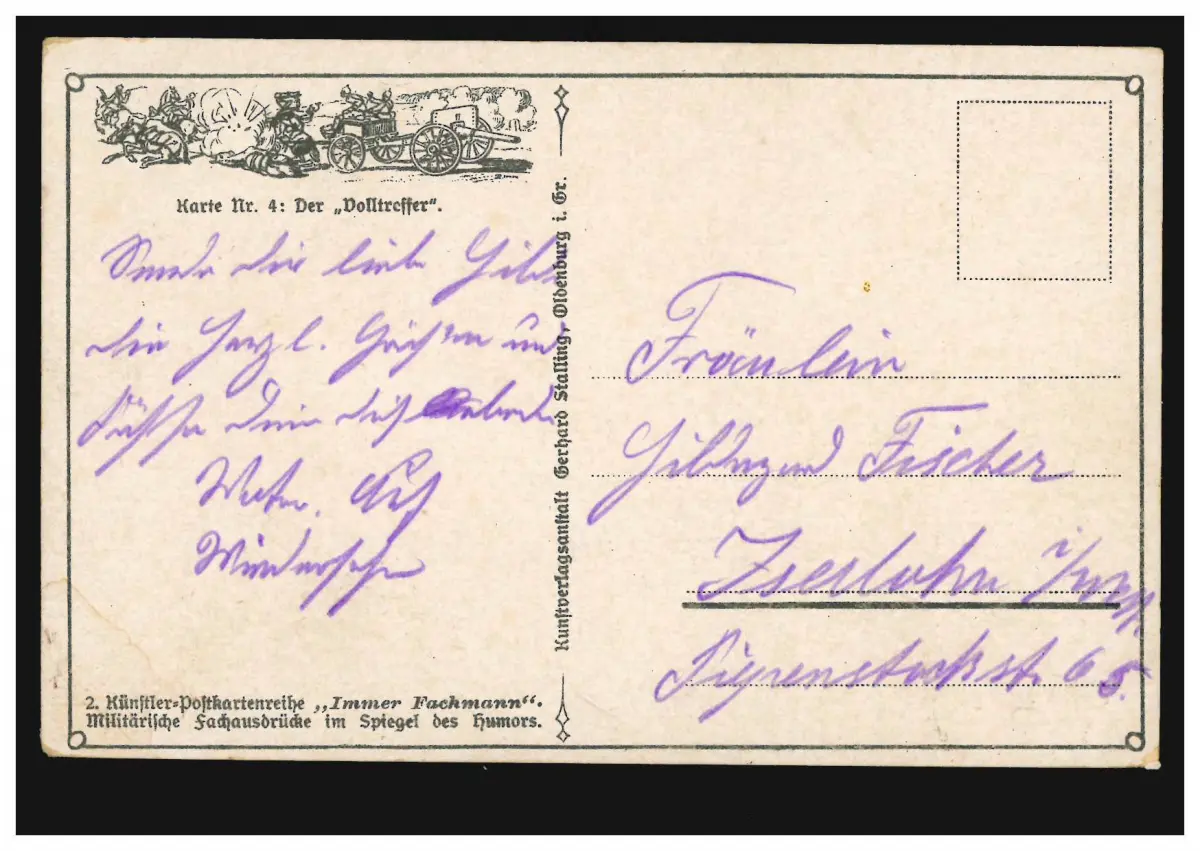 Karte Nr. 4: Der „Volltreffer".
Sende dir liebe Hilde
die herzl. Grüßen und
Küsse dein dich liebender
Vater. Auf
Wiedersehn
2. Künstler-Postkartenreihe „Immer Fachmann“.
Militärische Fachausdrücke im Spiegel des Humors.
Kunstverlagsanstalt Gerhard Stalling, Oldenburg i. Gr.
Fräulein
Hildegard Fischer
Iserlohn i/W
65.